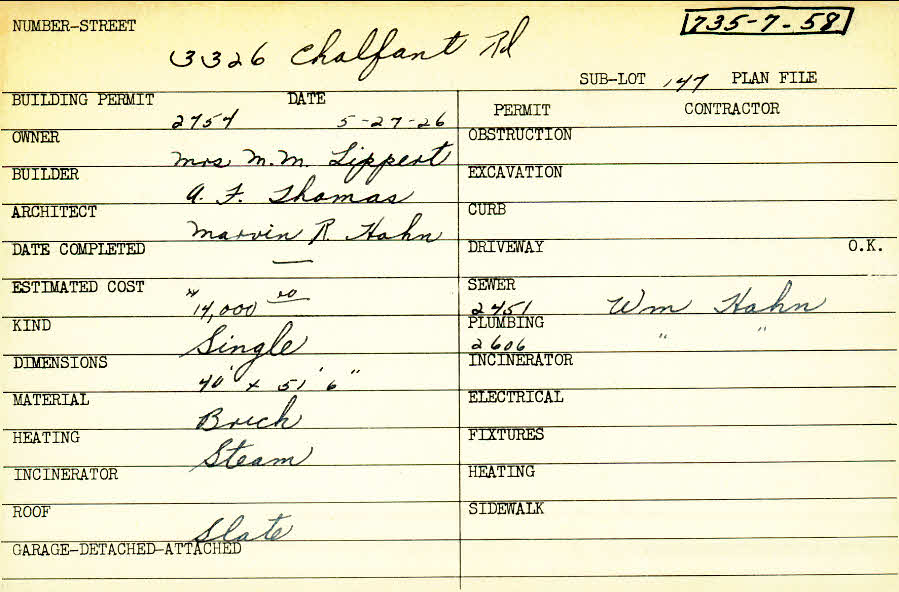 735-7-58
NUMBER-STREET
3326 Chalfant Rd
SUB-LOT 147 PLAN FILE
BUILDING PERMIT DATE
2754 5-27-26
OWNER
Mrs M.M. Lippert
BUILDER
A. F. Thomas
ARCHITECT
Marvin R. Hahn
DATE COMPLETED
—
ESTIMATED COST
" 14,000 00
KIND
Single
DIMENSIONS
40' x 51' 6"
MATERIAL
Brick
HEATING
Steam
INCINERATOR
ROOF
Slate
GARAGE-DETACHED-ATTACHED
PERMIT CONTRACTOR
OBSTRUCTION
EXCAVATION
CURB
DRIVEWAY O.K.
SEWER
2451 Wm Hahn
PLUMBING
2606 " "
INCINERATOR
ELECTRICAL
FIXTURES
HEATING
SIDEWALK